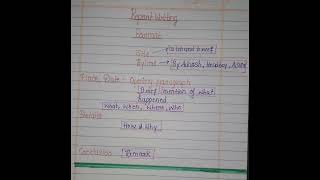 Report Writing
Format
Title
Byline By Aakash,
Place, Date - Opening paragraph
Brief mention of what
happened
What, When, Where, Who
Details
How & Why
Conclusion Remark